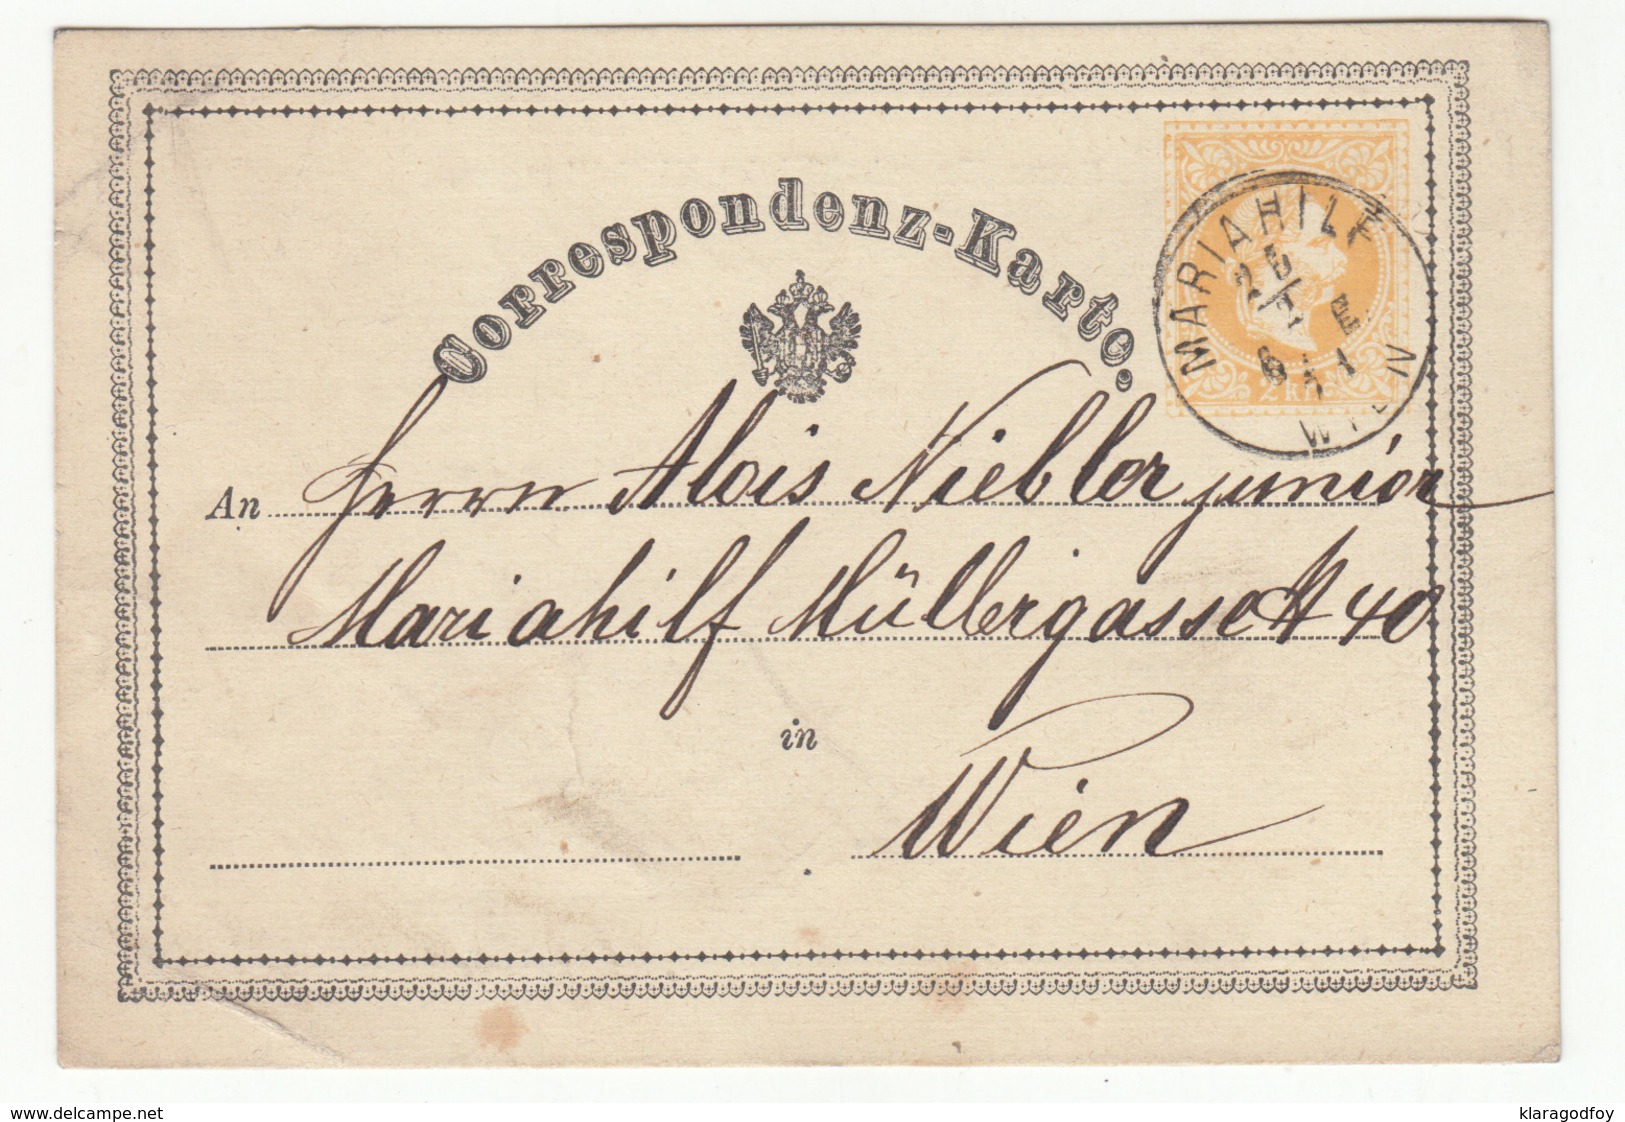 Correspondenz-Karte.
MARIAHILF
WIEN
2 kr.
An Herrn Alois Niebler junior
Mariahilf Müllergasse № 40
in
Wien
www.delcampe.net
klaragodfoy